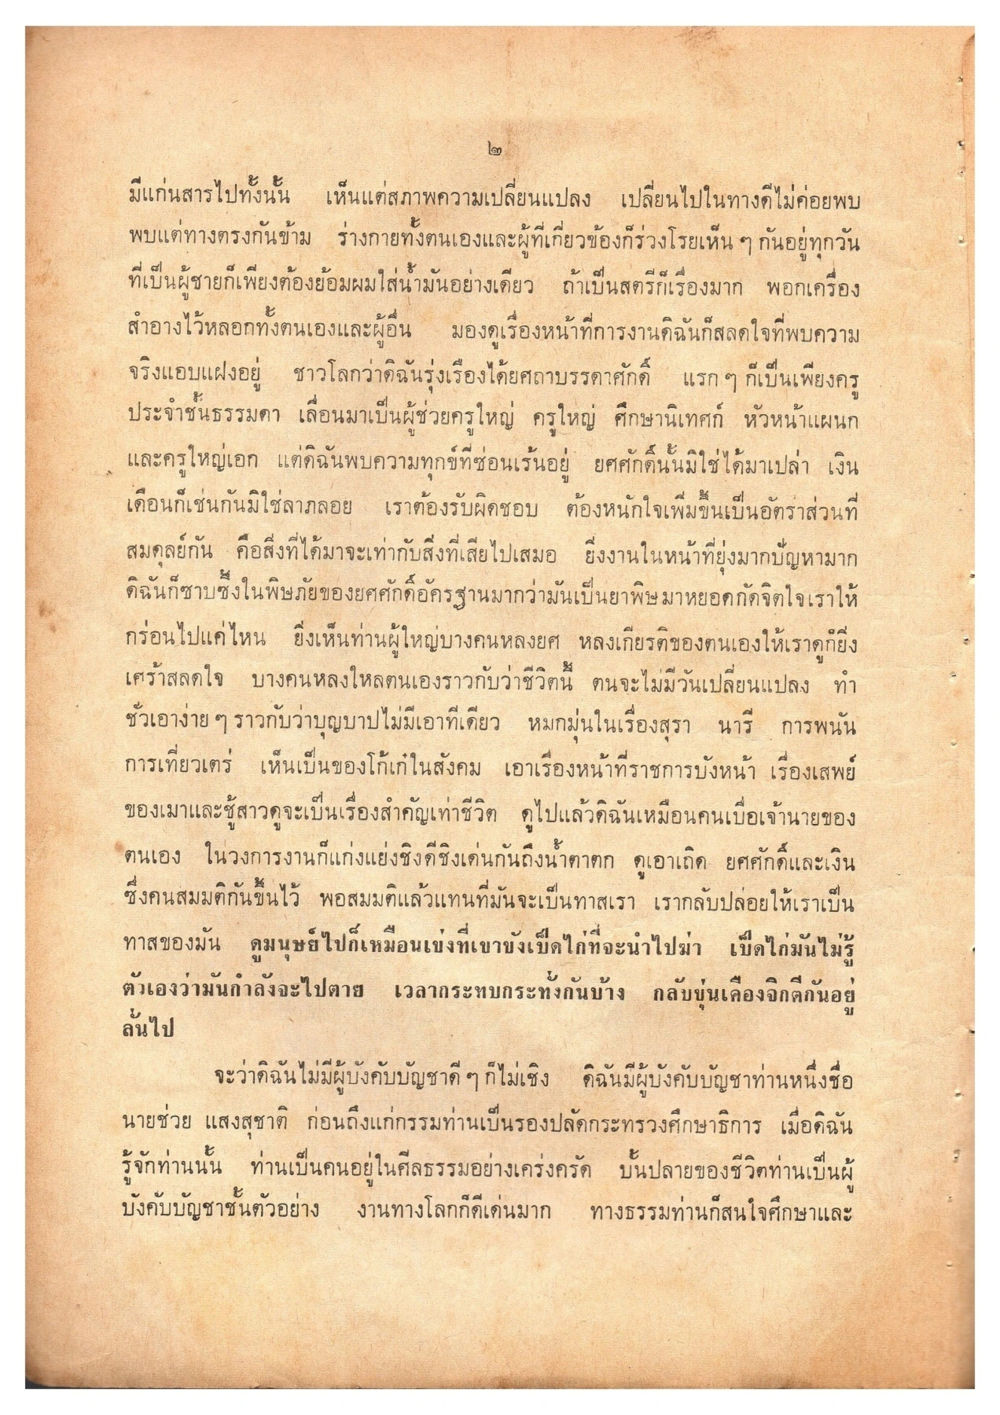 ๒
มีแก่นสารไปทั้งนั้น เห็นแต่สภาพความเปลี่ยนแปลง เปลี่ยนไปในทางดีไม่ค่อยพบ
พบแต่ทางตรงกันข้าม ร่างกายทั้งตนเองและผู้ที่เกี่ยวข้องก็ร่วงโรยเห็น ๆ กันอยู่ทุกวัน
ที่เป็นผู้ชายก็เพียงต้องย้อมผมใส่น้ำมันอย่างเดียว ถ้าเป็นสตรีก็เรื่องมาก พอกเครื่อง
สำอางไว้หลอกทั้งตนเองและผู้อื่น มองดูเรื่องหน้าที่การงานดิฉันก็สลดใจที่พบความ
จริงแอบแฝงอยู่ ชาวโลกว่าดิฉันรุ่งเรืองได้ยศถาบรรดาศักดิ์ แรก ๆ ก็เป็นเพียงครู
ประจำชั้นธรรมดา เลื่อนมาเป็นผู้ช่วยครูใหญ่ ครูใหญ่ ศึกษานิเทศก์ หัวหน้าแผนก
และครูใหญ่เอก แต่ดิฉันพบความทุกข์ที่ซ่อนเร้นอยู่ ยศศักดิ์นั้นมิใช่ได้มาเปล่า เงิน
เดือนก็เช่นกันมิใช่ลาภลอย เราต้องรับผิดชอบ ต้องหนักใจเพิ่มขึ้นเป็นอัตราส่วนที่
สมดุลย์กัน คือสิ่งที่ได้มาจะเท่ากับสิ่งที่เสียไปเสมอ ยิ่งงานในหน้าที่ยุ่งมากปัญหามาก
ดิฉันก็ซาบซึ้งในพิษภัยของยศศักดิ์อัครฐานมากว่ามันเป็นยาพิษมาหยอดกัดจิตใจเราให้
กร่อนไปแค่ไหน ยิ่งเห็นท่านผู้ใหญ่บางคนหลงยศ หลงเกียรติของตนเองให้เราดูก็ยิ่ง
เศร้าสลดใจ บางคนหลงใหลตนเองราวกับว่าชีวิตนี้ ตนจะไม่มีวันเปลี่ยนแปลง ทำ
ชั่วเอาง่าย ๆ ราวกับว่าบุญบาปไม่มีเอาทีเดียว หมกมุ่นในเรื่องสุรา นารี การพนัน
การเที่ยวเตร่ เห็นเป็นของโก้เก๋ในสังคม เอาเรื่องหน้าที่ราชการบังหน้า เรื่องเสพย์
ของเมาและชู้สาวดูจะเป็นเรื่องสำคัญเท่าชีวิต ดูไปแล้วดิฉันเหมือนคนเบื่อเจ้านายของ
ตนเอง ในวงการงานก็แก่งแย่งชิงดีชิงเด่นกันถึงน้ำตาตก ดูเอาเถิด ยศศักดิ์และเงิน
ซึ่งคนสมมติกันขึ้นไว้ พอสมมติแล้วแทนที่มันจะเป็นทาสเรา เรากลับปล่อยให้เราเป็น
ทาสของมัน ดูมนุษย์ไปก็เหมือนเข่งที่เขาขังเป็ดไก่ที่จะนำไปฆ่า เป็ดไก่มันไม่รู้
ตัวเองว่ามันกำลังจะไปตาย เวลากระทบกระทั่งกันบ้าง กลับขุ่นเคืองจิกตีกันอยู่
ลั่นไป
จะว่าดิฉันไม่มีผู้บังคับบัญชาดี ๆ ก็ไม่เชิง ดิฉันมีผู้บังคับบัญชาท่านหนึ่งชื่อ
นายช่วย แสงสุชาติ ก่อนถึงแก่กรรมท่านเป็นรองปลัดกระทรวงศึกษาธิการ เมื่อดิฉัน
รู้จักท่านนั้น ท่านเป็นคนอยู่ในศีลธรรมอย่างเคร่งครัด บั้นปลายของชีวิตท่านเป็นผู้
บังคับบัญชาชั้นตัวอย่าง งานทางโลกก็ดีเด่นมาก ทางธรรมท่านก็สนใจศึกษาและ